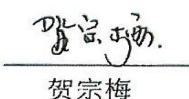 贺宗梅
贺宗梅